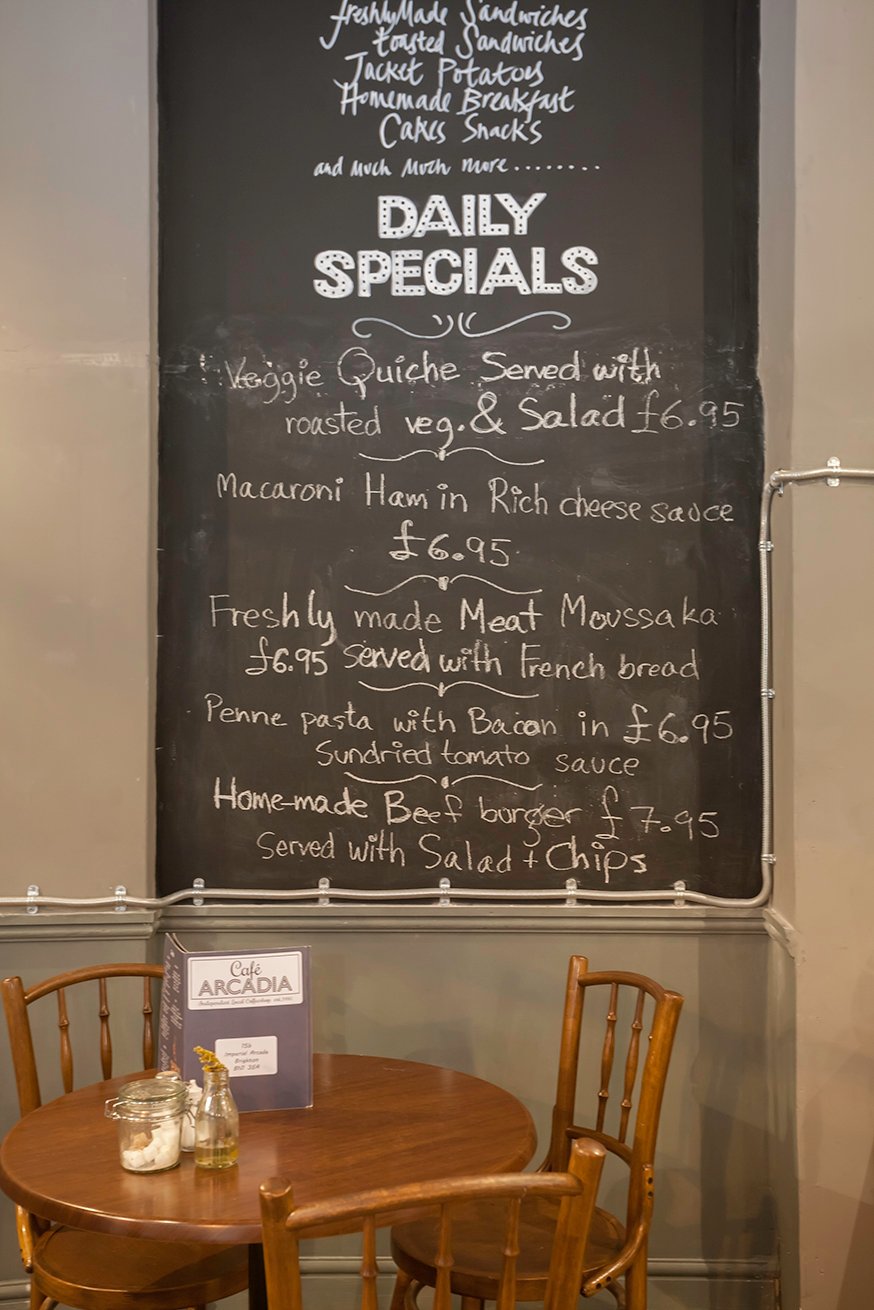 freshlyMade Sandwiches
toasted Sandwiches
Jacket Potatoes
Homemade Breakfast
Cakes Snacks
and Much Much more........
DAILY
SPECIALS
Veggie Quiche Served with
roasted veg. & Salad £6.95
Macaroni Ham in Rich cheese sauce
£6.95
Freshly made Meat Moussaka
£6.95 served with French bread
Penne pasta with Bacon in £6.95
Sundried tomato sauce
Home-made Beef burger £7.95
Served with Salad + Chips
Café
ARCADIA
Independent Local Coffeeshop
Imperial Arcade
Brighton